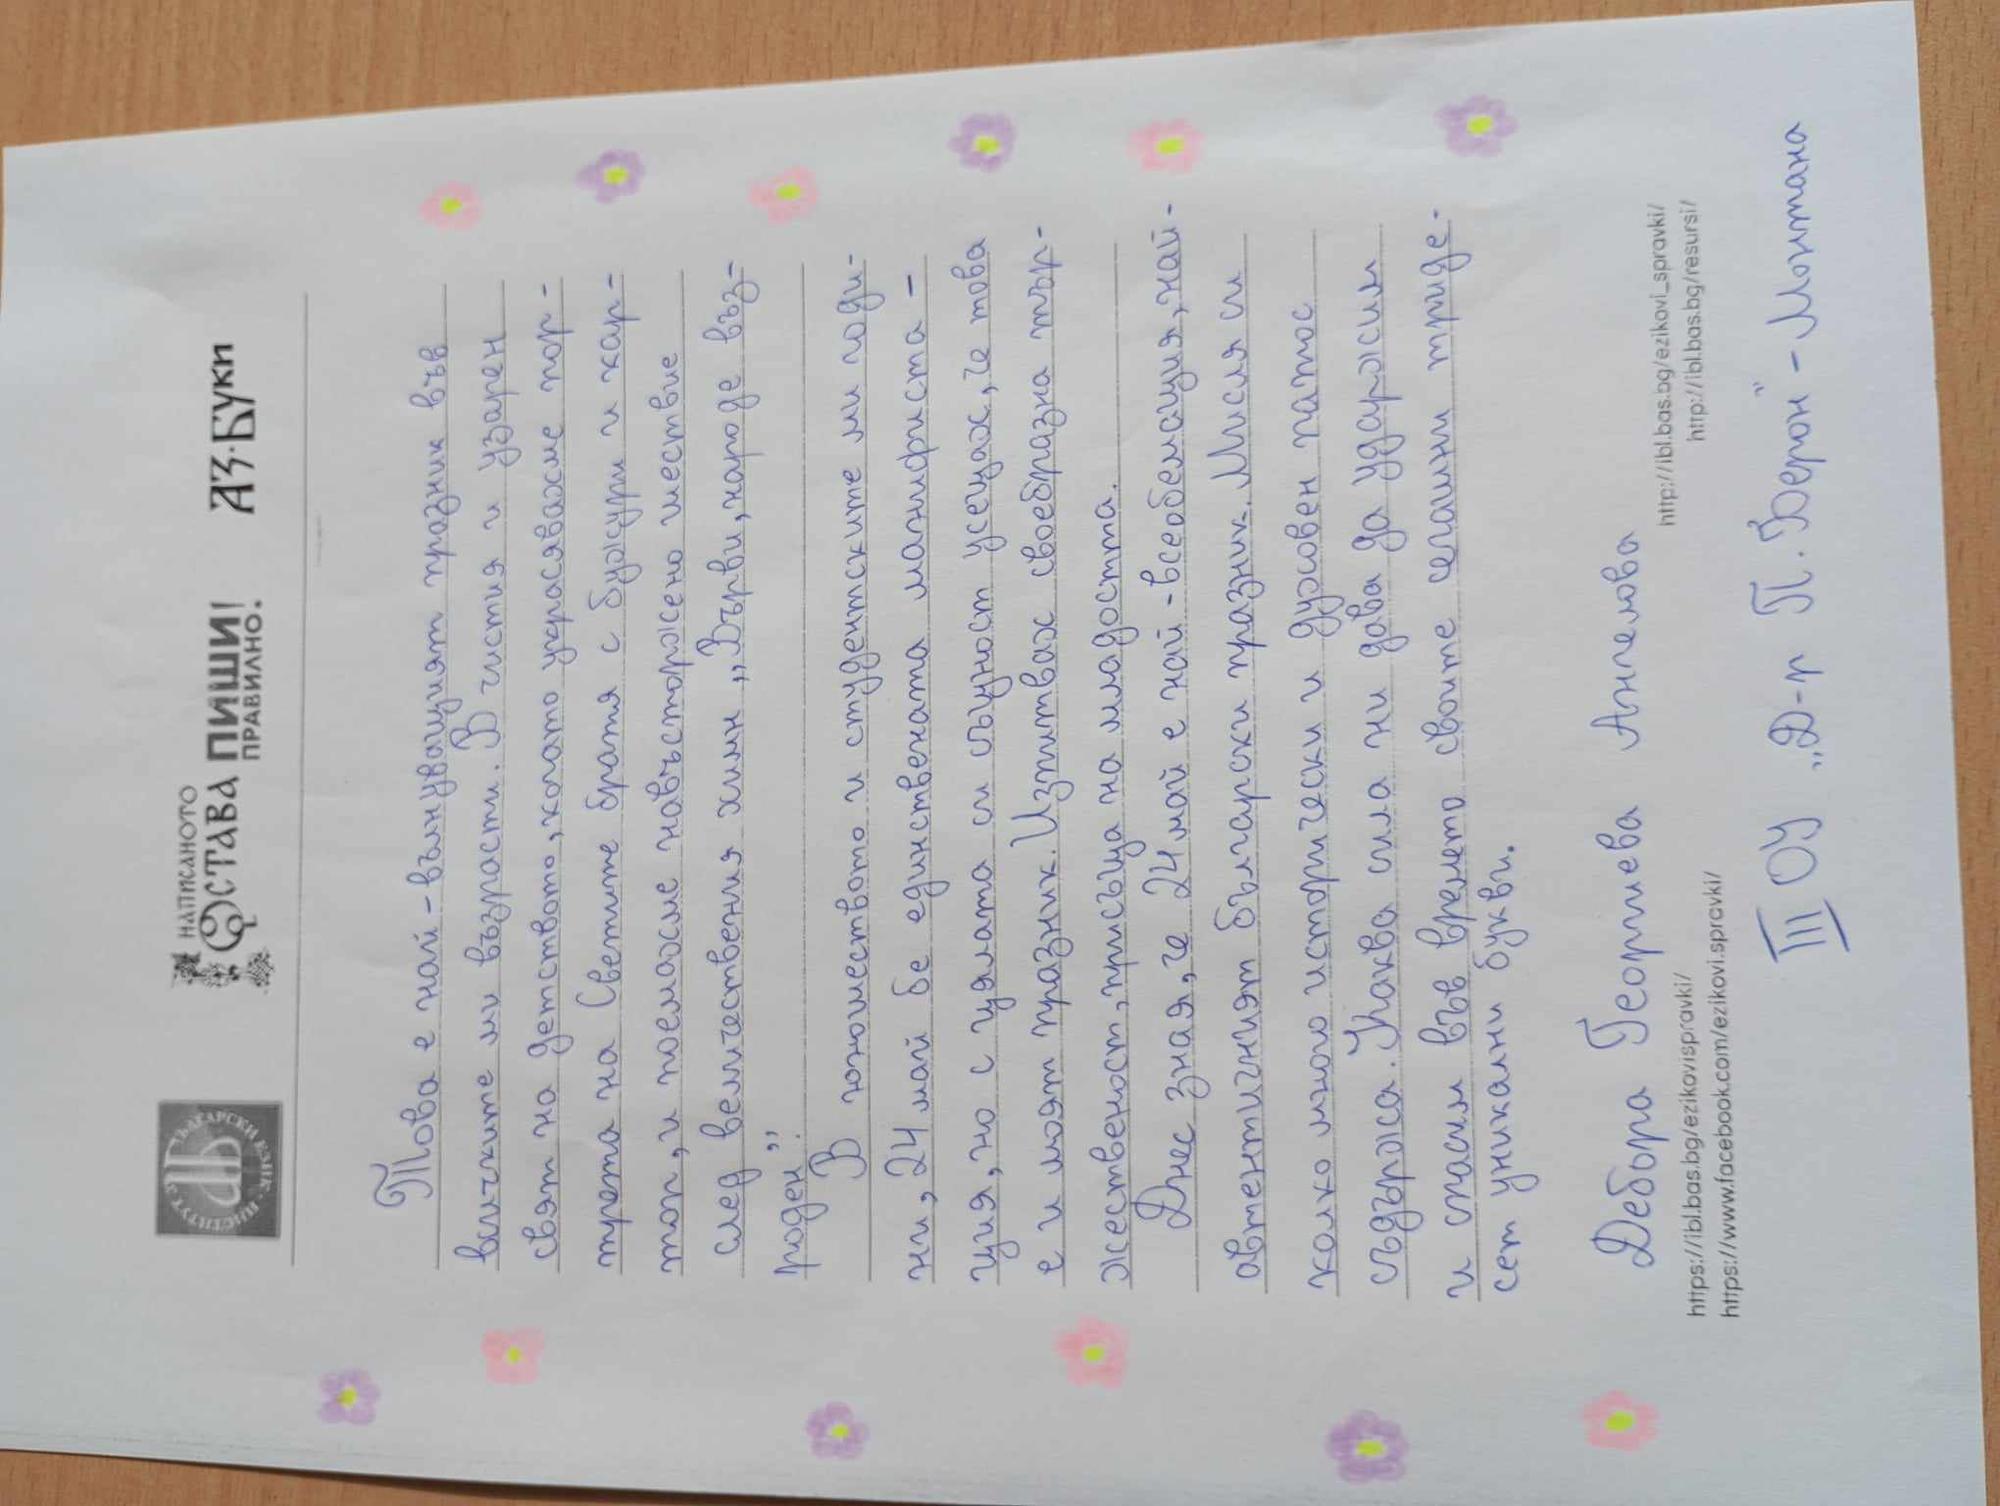 ИНСТИТУТ ЗА БЪЛГАРСКИ ЕЗИК
НАПИСАНОТО
ОСТАВА ПИШИ!
ПРАВИЛНО!
АЗ·БУКИ
Това е най-вълнуващият празник във
всичките ми възрасти. В чистия и узарен
свят на детството, когато украсявахме пор-
трета на Светите братя с божури и кар-
тол, и поемахме навъсторжено шествие
след величествения химн „Върви, народе въз-
роден".
В юношеството и студентските ми годи-
ни, 24 май бе единствената манифеста-
ция, но с цялата си същност усещах, че това
е и моят празник. Изпитвах своебразна тър-
жественост, присъща на младостта.
Днес зная, че 24 май е най-всеобемащия, най-
автентичният български празник. Мисля си
колко много исторически и духовен патос
съдържа. Каква сила ни дава да удържим
и спасим във времето своите селаини триде-
сет уникални букви.
Дебора Георгиева Ангелова
https://ibl.bas.bg/ezikovispravki/
https://www.facebook.com/ezikovi.spravki/
http://ibl.bas.bg/ezikovi_spravki/
http://ibl.bas.bg/resursi/
III ОУ „Д-р П. Берон" - Монтана